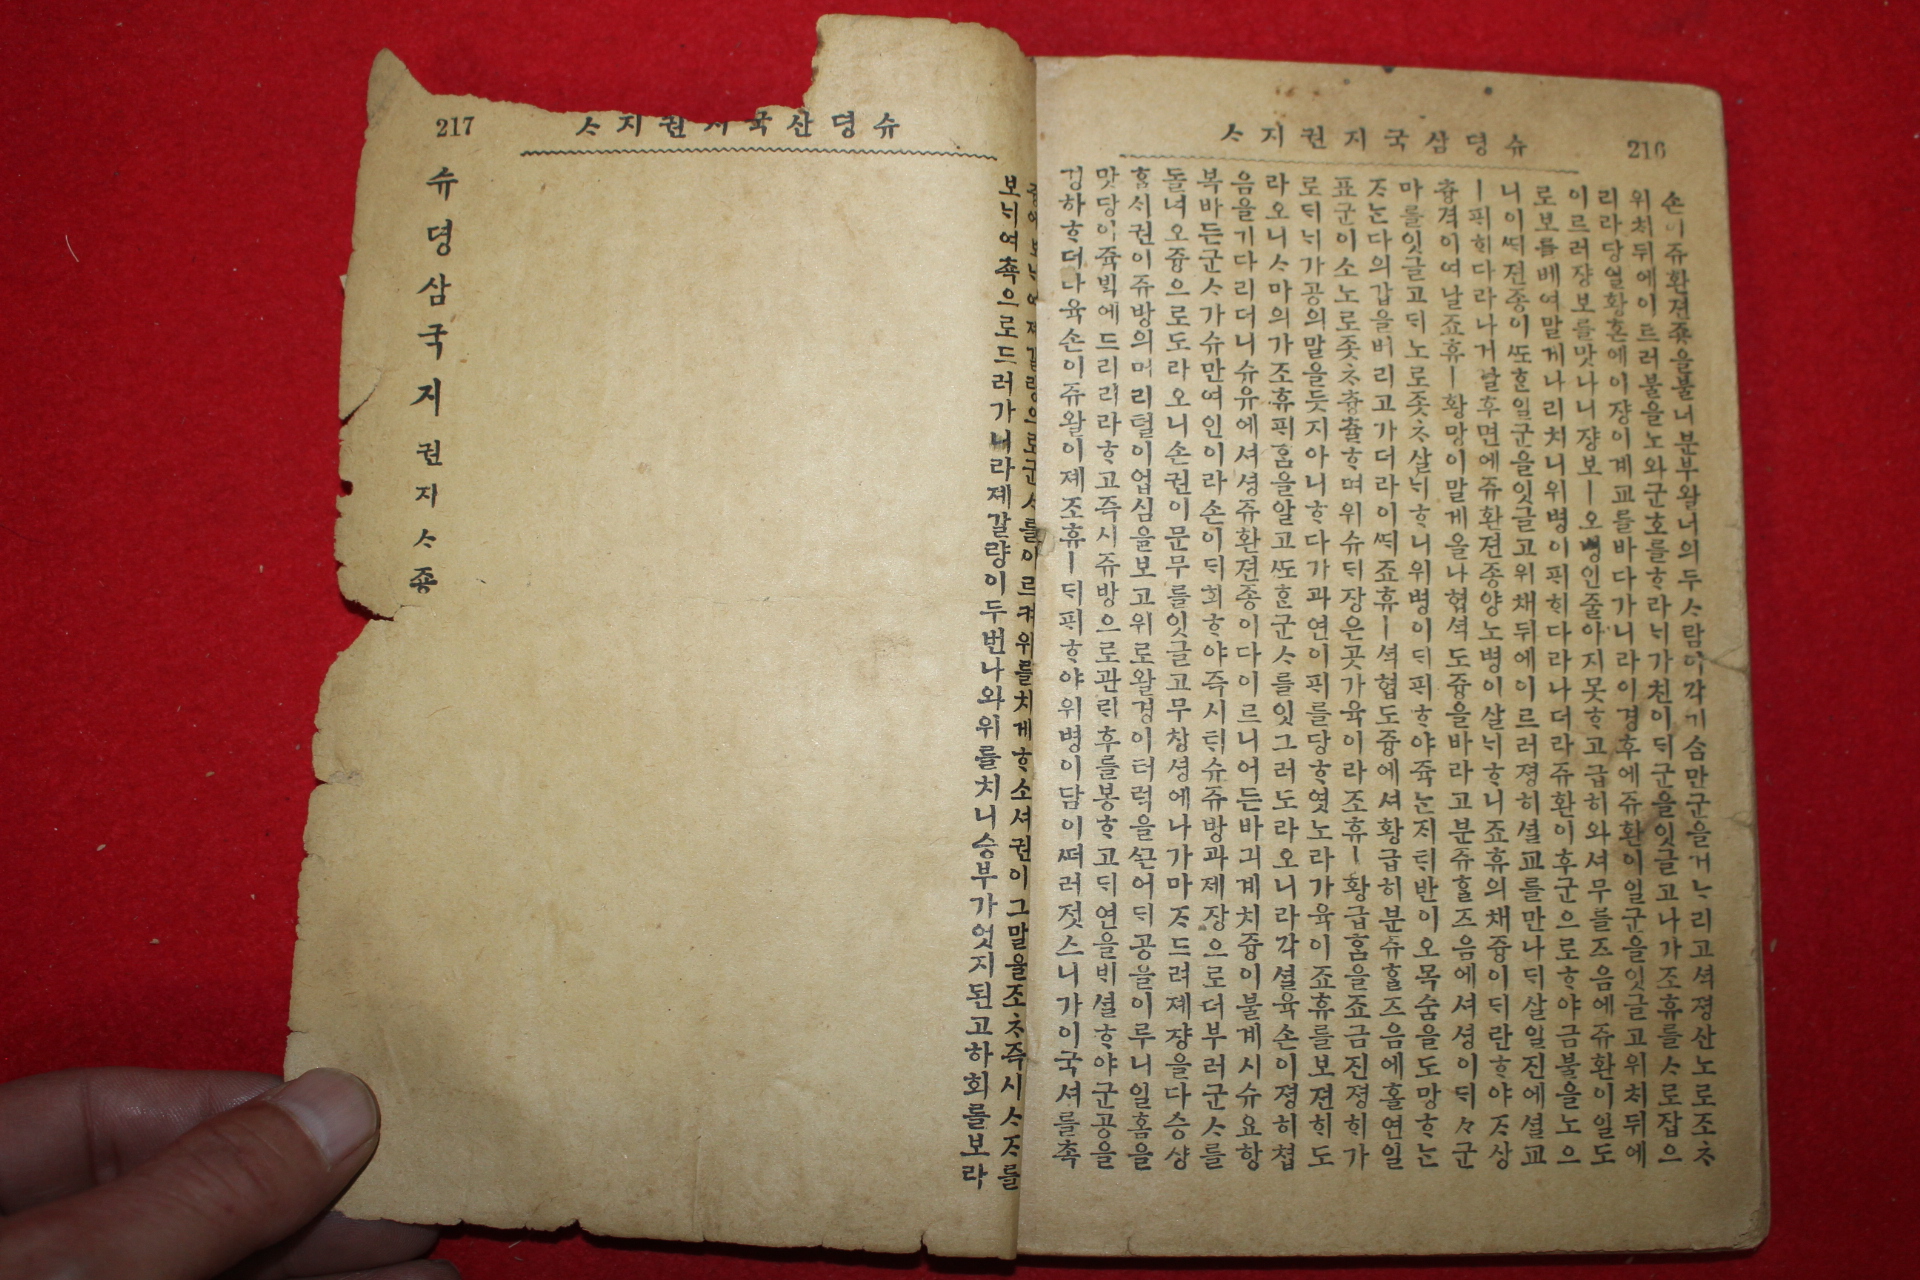 216
슈뎡삼국지권지ᄉᆞ
손이쥬환젼죵을불너분부왈너의두ᄉᆞ람이각기삼만군을거ᄂᆞ리고셔졍산노로조ᄎᆞ
위채뒤에이르러불을노와군호를ᄒᆞ라ᄂᆡ가친이ᄃᆡ군을잇글고나가조휴를ᄉᆞ로잡으
리라당일황혼에이쟝이계교를바다가니라이경후에쥬환이일군을잇글고위채뒤에
이르러쟝보를맛나니쟝보ㅣ오병인줄아지못ᄒᆞ고급히와셔무를즈음에쥬환이일도
로보를베여말게나리치니위병이ᄑᆡᄒᆡ다라나더라쥬환이후군으로ᄒᆞ야금불을노으
니이ᄯᆡ젼종이ᄯᅩᄒᆞᆫ일군을잇글고위채뒤에이르러졍히셜교를만나ᄃᆡ살일진에셜교
ㅣᄑᆡᄒᆡ다라나거ᄂᆞᆯ후면에쥬환젼종양노병이살ᄂᆡᄒᆞ니죠휴의채즁이ᄃᆡ란ᄒᆞ야ᄌᆞ상
츙격이여날죠휴ㅣ황망이말게올나협셕도즁을바라고분쥬ᄒᆞᆯ즈음에셔셩이ᄃᆡ々군
마를잇글고ᄃᆡ노로좃ᄎᆞ살ᄂᆡᄒᆞ니위병이ᄃᆡᄑᆡᄒᆞ야쥭ᄂᆞᆫᄌᆡᄐᆡ반이오목숨을도망ᄒᆞᄂᆞᆫ
ᄌᆞᄂᆞᆫ다의갑을버리고가더라이ᄯᆡ죠휴ㅣ셕협도즁에셔황급히분쥬ᄒᆞᆯ즈음에홀연일
표군이소노로좃ᄎᆞ츙츌ᄒᆞ며위슈ᄃᆡ장은곳가육이라조휴ㅣ황급홈을죠금진졍히가
로ᄃᆡᄂᆡ가공의말을듯지아니ᄒᆞ다가과연이ᄑᆡ를당ᄒᆞ엿노라가육이죠휴를보젼히도
라오니ᄉᆞ마의가조휴ᄑᆡ홈을알고ᄯᅩᄒᆞᆫ군ᄉᆞ를잇그러도라오니라각셜육손이졍히쳡
음을기다리더니슈유에셔셩쥬환젼종이다이르니어든바긔계치즁이불계시슈요항
복바든군ᄉᆞ가슈만여인이라손이ᄃᆡ희ᄒᆞ야즉시ᄐᆡ슈쥬방과제장으로더부러군ᄉᆞ를
돌녀오즁으로도라오니손권이문무를잇글고무창셩에나가마ᄌᆞ드려졔쟝을다승샹
ᄒᆞᆯᄉᆡ권이쥬방의머리털이업심을보고위로왈경이터럭을ᄭᅳᆫ어ᄃᆡ공을이루니일홈을
맛당이쥭ᄇᆡᆨ에드리리라ᄒᆞ고즉시쥬방으로관ᄂᆡ후를봉ᄒᆞ고ᄃᆡ연을ᄇᆡ셜ᄒᆞ야군공을
경하ᄒᆞ더니육손이쥬왈이졔조휴ㅣᄃᆡᄑᆡᄒᆞ야위병이담이ᄯᅥ러졋스니가이국셔를촉
슈뎡산국지권지ᄉᆞ
217
즁에보ᄂᆡ여제갈량으로군ᄉᆞ를이르켜위를치게ᄒᆞ소셔권이그말을조ᄎᆞ즉시ᄉᆞᄌᆞ를
보ᄂᆡ여쵹으로드러가니라졔갈량이두번나와위를치니승부가엇지된고하회를보라
슈뎡삼국지권지ᄉᆞ죵